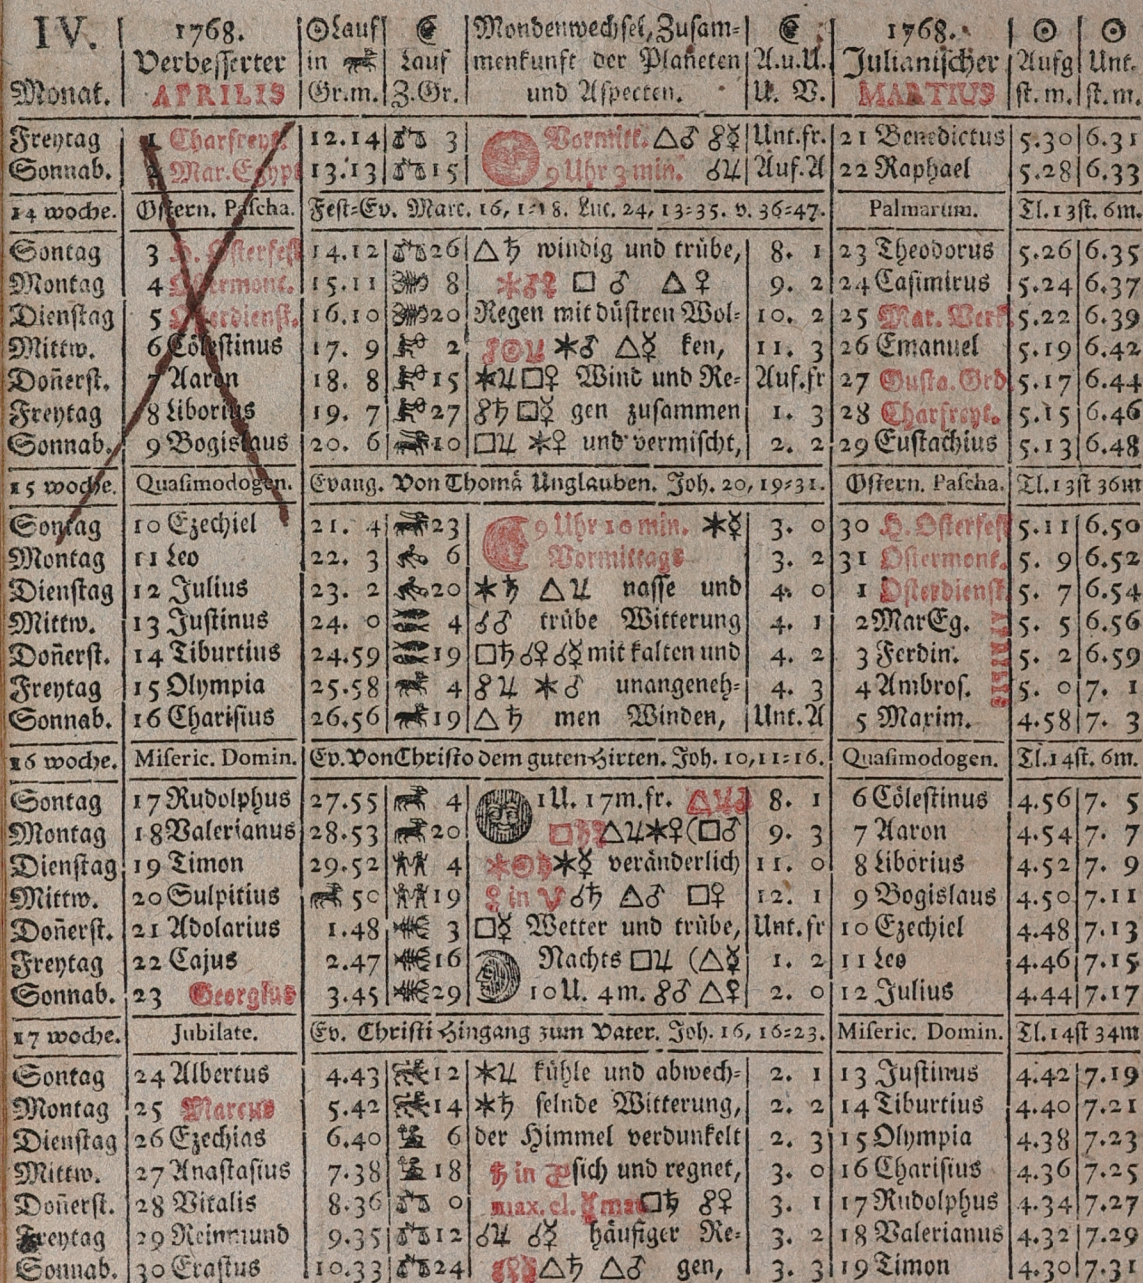 IV. 1768. ☉Lauf ☾ Mondenwechsel, Zusam= ☾ 1768. ☉ ☉
Verbesserter in Lauf menkunft der Planeten A.u.U. Julianischer Aufg Unt.
Monat. APRILIS Gr.m. Z.Gr. und Aspecten. U. V. MARTIUS st.m. st.m.
Freytag 1 Charfreyt. 12.14 3 Vormitt. △♂ ☍☿ Unt.fr. 21 Benedictus 5.30 6.31
Sonnab. Mar.Egypt 13.13 15 9 Uhr 3 min. ☌♃ Auf.A 22 Raphael 5.28 6.33
14 woche. Ostern. Pascha. Fest=Ev. Marc. 16, 1=18. Luc. 24, 13=35. v. 36=47. Palmarum. Tl.13st. 6m.
Sontag 3 H. Osterfest 14.12 26 △♄ windig und trübe, 8. 1 23 Theodorus 5.26 6.35
Montag 4 Ostermont. 15.11 8 □ ♂ △♀ 9. 2 24 Casimirus 5.24 6.37
Dienstag 5 Osterdienst. 16.10 20 Regen mit düstren Wol= 10. 2 25 Mar. Verk. 5.22 6.39
Mittw. 6 Cölestinus 17. 9 2 ⚹♂ △☿ ken, 11. 3 26 Emanuel 5.19 6.42
Doñerst. 7 Aaron 18. 8 15 ⚹♃□♀ Wind und Re= Auf.fr 27 Gusta.Grd 5.17 6.44
Freytag 8 Liborius 19. 7 27 ☍♄□☿ gen zusammen 1. 3 28 Charfreyt. 5.15 6.46
Sonnab. 9 Bogislaus 20. 6 10 □♃ ⚹♀ und vermischt, 2. 2 29 Eustachius 5.13 6.48
15 woche. Quasimodogen. Evang. Von Thomä Unglauben. Joh. 20, 19=31. Ostern. Pascha. Tl.13st 36m
Sontag 10 Ezechiel 21. 4 23 9 Uhr 10 min. ⚹☿ 3. 0 30 H. Osterfest 5.11 6.50
Montag 11 Leo 22. 3 6 Vormittags 3. 2 31 Ostermont. 5. 9 6.52
Dienstag 12 Julius 23. 2 20 ⚹♄ △♃ nasse und 4. 0 1 Osterdienst 5. 7 6.54
Mittw. 13 Justinus 24. 0 4 ☌♂ trübe Witterung 4. 1 2 MarEg. 5. 5 6.56
Doñerst. 14 Tiburtius 24.59 19 □♄☌♀☌☿ mit kalten und 4. 2 3 Ferdin. 5. 2 6.59
Freytag 15 Olympia 25.58 4 ☍♃ ⚹♂ unangeneh= 4. 3 4 Ambros. 5. 0 7. 1
Sonnab. 16 Charisius 26.56 19 △♄ men Winden, Unt.A 5 Maxim. 4.58 7. 3
16 woche. Miseric. Domin. Ev. Von Christo dem guten Hirten. Joh. 10, 11=16. Quasimodogen. Tl.14st. 6m.
Sontag 17 Rudolphus 27.55 4 1U. 17m.fr. 8. 1 6 Cölestinus 4.56 7. 5
Montag 18 Valerianus 28.53 20 △♃⚹♀(□♂ 9. 3 7 Aaron 4.54 7. 7
Dienstag 19 Timon 29.52 4 ⚹☉♄⚹☿ veränderlich 11. 0 8 Liborius 4.52 7. 9
Mittw. 20 Sulpitius 50 19 ☿ in ♉ ☌♄ △♂ □♀ 12. 1 9 Bogislaus 4.50 7.11
Doñerst. 21 Adolarius 1.48 3 □☿ Wetter und trübe, Unt.fr 10 Ezechiel 4.48 7.13
Freytag 22 Cajus 2.47 16 Nachts □♃ (△☿ 1. 2 11 Leo 4.46 7.15
Sonnab. 23 Georgius 3.45 29 10U. 4m. ☍♂ △♀ 2. 0 12 Julius 4.44 7.17
17 woche. Jubilate. Ev. Christi Hingang zum Vater. Joh. 16, 16=23. Miseric. Domin. Tl.14st 34m
Sontag 24 Albertus 4.43 12 ⚹♃ kühle und abwech= 2. 1 13 Justinus 4.42 7.19
Montag 25 Marcus 5.42 14 ⚹♄ selnde Witterung, 2. 2 14 Tiburtius 4.40 7.21
Dienstag 26 Ezechias 6.40 6 der Himmel verdunkelt 2. 3 15 Olympia 4.38 7.23
Mittw. 27 Anastasius 7.38 18 ♄ in sich und regnet, 3. 0 16 Charisius 4.36 7.25
Doñerst. 28 Vitalis 8.36 0 max.cl. □♄ ☍♀ 3. 1 17 Rudolphus 4.34 7.27
Freytag 29 Reinmund 9.35 12 ☌♃ ☍☿ häufiger Re= 3. 2 18 Valerianus 4.32 7.29
Sonnab. 30 Erastus 10.33 24 △♄ △♂ gen, 3. 3 19 Timon 4.30 7.31